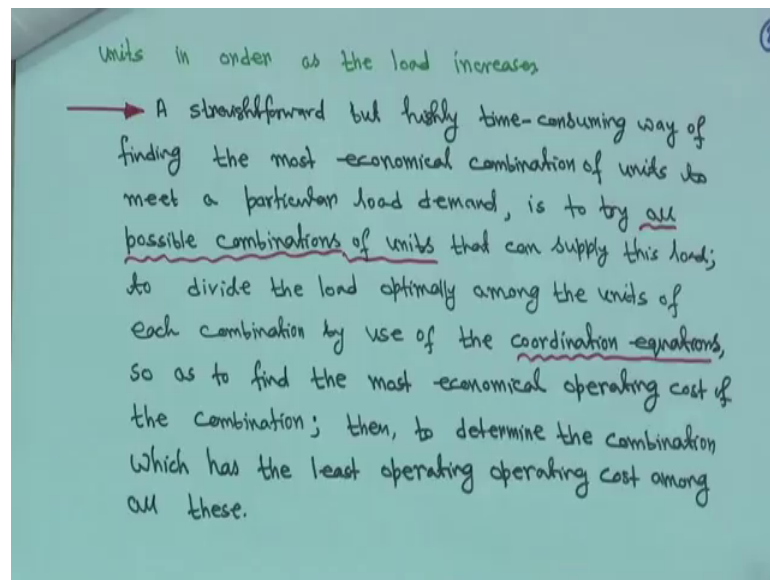 units in order as the load increases
→ A straightforward but highly time-consuming way of
finding the most economical combination of units to
meet a particular load demand, is to try all
possible combinations of units that can supply this load;
to divide the load optimally among the units of
each combination by use of the coordination equations,
so as to find the most economical operating cost of
the combination; then, to determine the combination
which has the least operating operating cost among
all these.